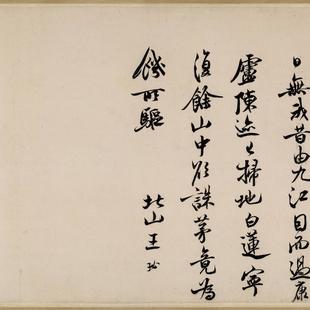 日無或昔由九江目而過康
廬陳迹掃地白蓮寧
復餘山中欲誅茅竟為
饑所驅
北山王